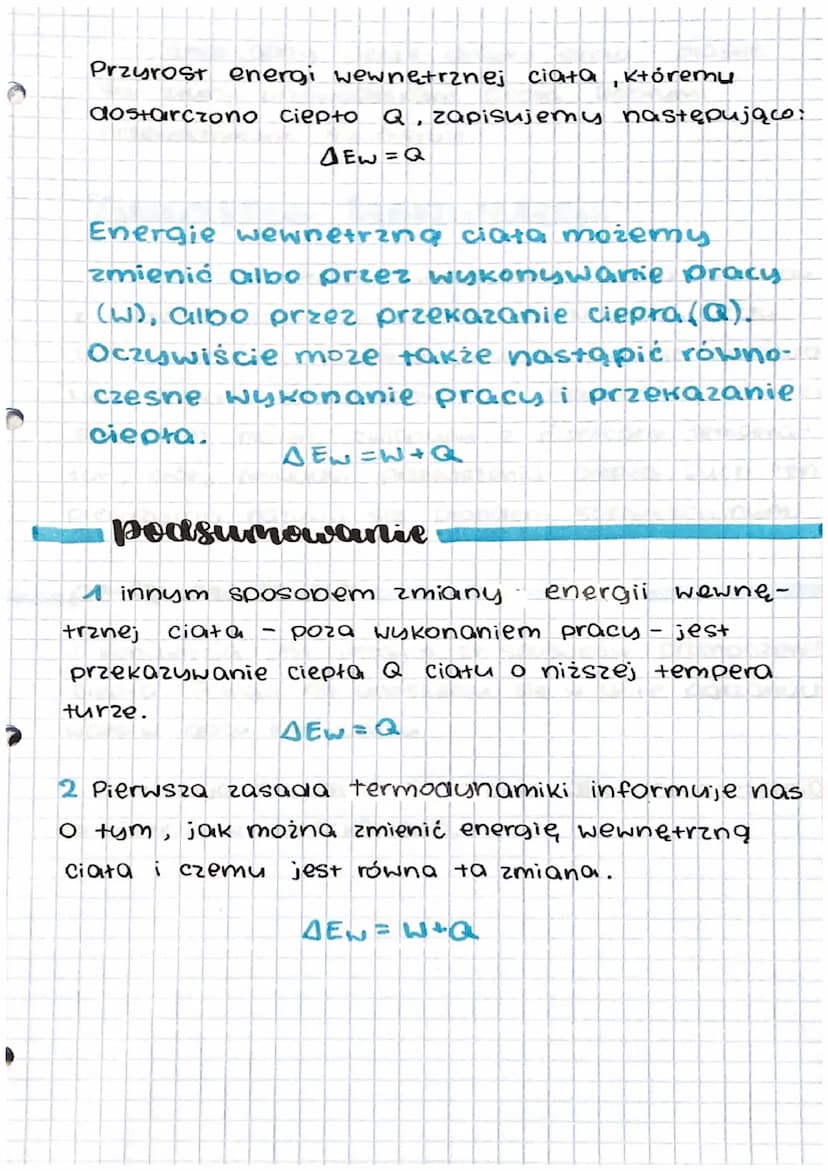 Przyrost energi wewnętrznej ciała, któremu
dostarczono ciepło Q, zapisujemy następująco:
ΔEw = Q
Energie wewnetrzną ciała możemy
zmienić albo przez wykonywanie pracy
(W), albo przez przekazanie ciepła (Q).
Oczywiście może także nastąpić równo-
czesne wykonanie pracy i przekazanie
ciepła.
ΔEw = W + Q
podsumowanie
1 innym sposobem zmiany energii wewnę-
trznej ciała - poza wykonaniem pracy - jest
przekazywanie ciepła Q ciału o niższej tempera
turze.
ΔEw = Q
2 Pierwsza zasada termodynamiki informuje nas
o tym, jak można zmienić energię wewnętrzną
ciała i czemu jest równa ta zmiana.
ΔEw = W+Q